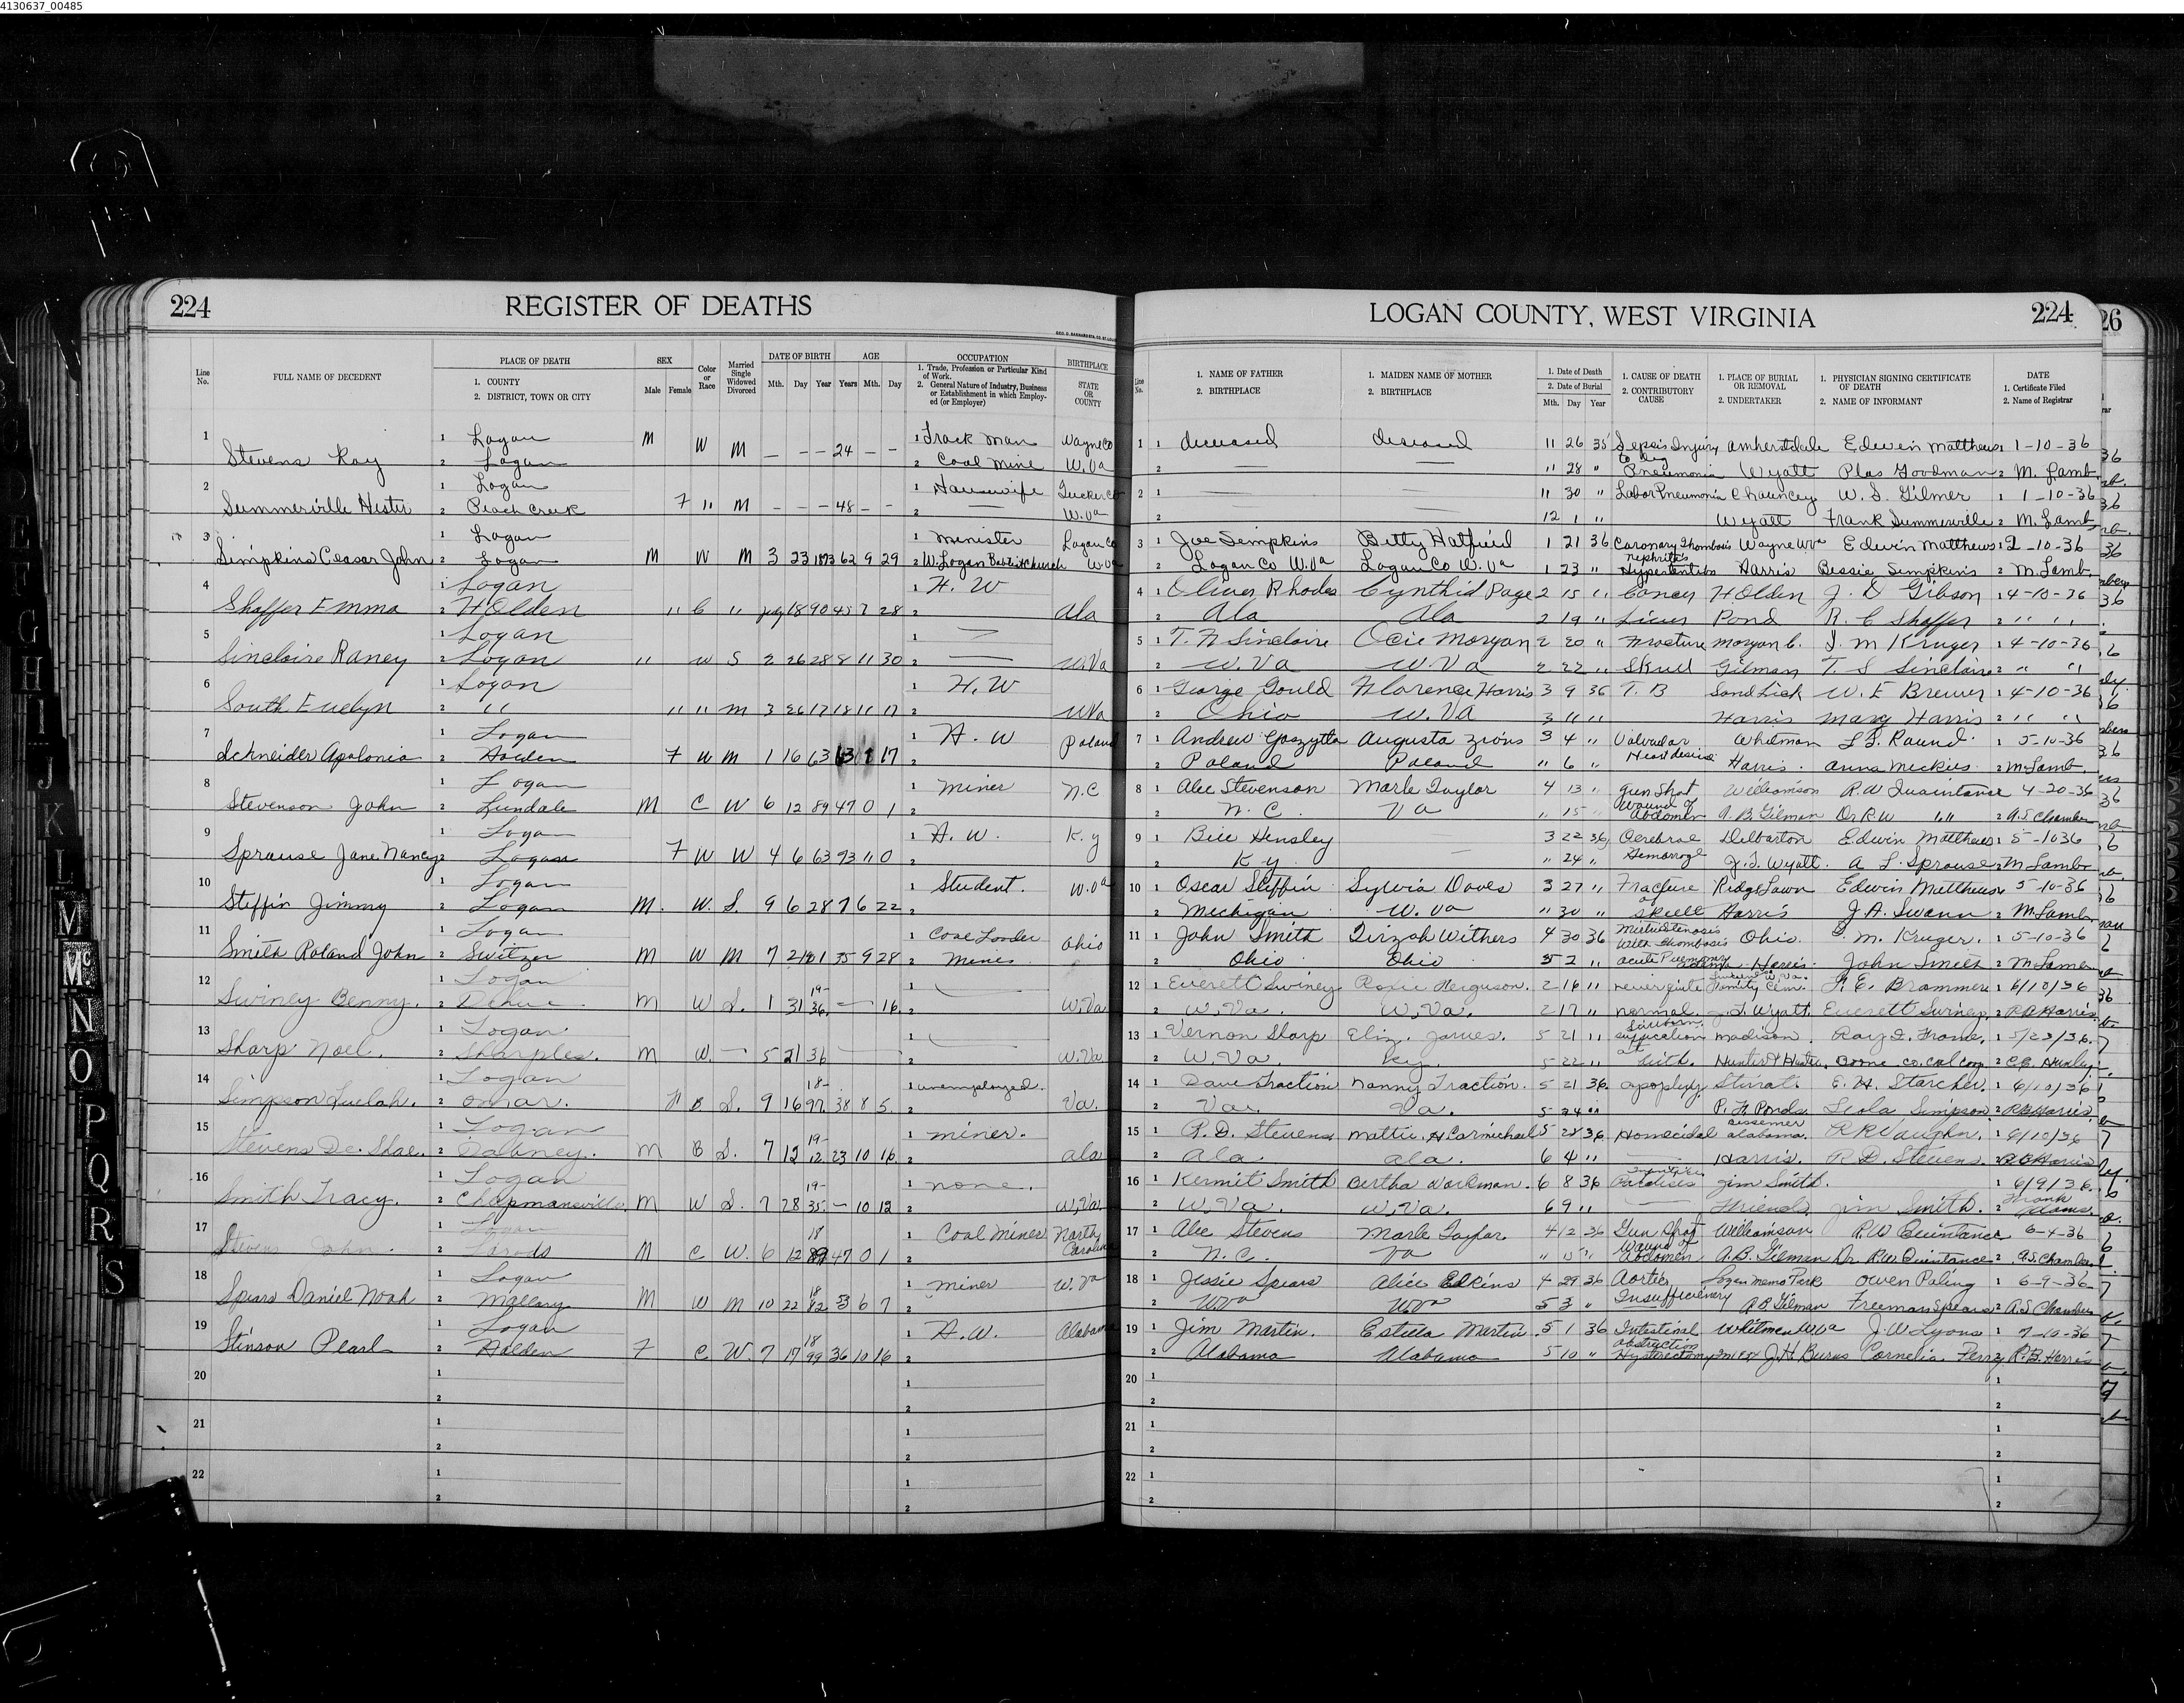 4130637_00485
224 REGISTER OF DEATHS
LOGAN COUNTY, WEST VIRGINIA 224 26
Line No. FULL NAME OF DECEDENT PLACE OF DEATH 1. COUNTY 2. DISTRICT, TOWN OR CITY SEX Male Female Color or Race Married Single Widowed Divorced DATE OF BIRTH Mth. Day Year AGE Years Mth. Day OCCUPATION 1. Trade, Profession or Particular Kind of Work. 2. General Nature of Industry, Business or Establishment in which Employed (or Employer) BIRTHPLACE STATE OR COUNTY
Line No. 1. NAME OF FATHER 2. BIRTHPLACE 1. MAIDEN NAME OF MOTHER 2. BIRTHPLACE 1. Date of Death 2. Date of Burial Mth. Day Year 1. CAUSE OF DEATH 2. CONTRIBUTORY CAUSE 1. PLACE OF BURIAL OR REMOVAL 2. UNDERTAKER 1. PHYSICIAN SIGNING CERTIFICATE OF DEATH 2. NAME OF INFORMANT DATE 1. Certificate Filed 2. Name of Registrar
1 1 Logan M W M — — — 24 — — 1 Track Man Wayne Co
Stevens Ray 2 Logan 2 Coal Mine W.Va
1 1 deceased deseased 11 26 35 Sepsis Injury to leg Amherstdale Edwin Matthews 1 1-10-36
2 — — " 28 " Pneumonia Wyatt Plas Goodman 2 M. Lamb
2 1 Logan F " M — — — 48 — — 1 Housewife Tucker Co
Summerville Hester 2 Peach Creek 2 — W.Va
2 1 — — 11 30 " Lobor Pneumonia Chauncey W. S. Gilmer 1 1-10-36
2 12 1 " Wyatt Frank Summerville 2 M. Lamb
3 1 Logan 1 Minister Logan Co
Simpkins Ceasar John 2 Logan M W M 3 23 1873 62 9 29 2 W. Logan Baptist Church W.Va
3 1 Joe Simpkins Betty Hatfield 1 21 36 Coronary Thombois Wayne WVa Edwin Matthews 1 2-10-36
2 Logan Co W.Va Logan Co W.Va 1 23 " nephritis Harris Bessie Simpkins 2 M. Lamb
4 1 Logan 1 H. W
Shaffer Emma 2 Holden " C " July 18 90 45 7 28 2 Ala
4 1 Oliver Rhodes Cynthid Page 2 15 " Cancer Holden J. D Gibson 1 4-10-36
2 Ala Ala 2 19 " Liver Pond R. C Shaffer 2 " "
5 1 Logan 1 —
Sinclaire Raney 2 Logan " W S 2 26 28 8 11 30 2 — W.Va
5 1 T. N Sinclaire Ocie Morgan 2 20 " Fracture Morgan C. I. M Kruger 1 4-10-36
2 W.Va W.Va 2 22 " Skull Gilman T. S Sinclaire 2 " "
6 1 Logan 1 H. W
South Evelyn 2 " " " M 3 26 17 18 11 17 2 WVa
6 1 George Gould Florence Harris 3 9 36 T. B Sand Lick W. E Brewer 1 4-10-36
2 Ohio W.Va 3 11 " Harris Mary Harris 2 " "
7 1 Logan 1 H. W Poland
Schneider Apolonia 2 Holden F W M 1 16 63 17 2
7 1 Andrew Augusta Zions 3 4 " Valvular Whitman 1 5-10-36
2 Poland Poland " 6 " Heart Harris. Anna Meckies 2 M. Lamb.
8 1 Logan 1 Miner N.C
Stevenson John 2 Lundale M C W 6 12 89 47 0 1 2
8 1 Alec Stevenson Marle Taylor 4 13 " Gun Shot Williamson R.W Quaintance 4-20-36
2 N. C. Va " 15 " Wound of Abdomen A. B Gilman Dr R.W " " 2 A.S Chamber
9 1 Logan 1 H. W. K.y
Sprouse Jane Nancy 2 Logan F W W 4 6 63 73 11 0 2
9 1 Bill Hensley — 3 22 36 Cerebral Delbarton Edwin Matthews 1 5-1036
2 K y. " 24 " Hemorroge J. T. Wyatt. A L. Sprouse 2 M Lamb
10 1 Logan 1 Student. W.Va
Stiffin Jimmy 2 Logan M. W. S. 9 6 28 7 6 22 2
10 1 Oscar Stiffin Sylvia Doves 3 27 " Fracture of Ridge Lawn Edwin Matthews 5-10-36
2 Michigan W. Va " 30 " Skull Harris J. A. Swann 2 M. Lamb
11 1 Logan 1 Coal Loader Ohio
Smith Roland John 2 Switzer M W M 7 2 1901 35 9 28 2 Mines
11 1 John Smith Tirzah Withers 4 30 36 Mitral Stenosis With Thombosis Ohio. M. Kruger. 1 5-10-36
2 Ohio Ohio 5 2 " Acute Pulmonary Edema Harris. John Smith 2 M Lamb
12 1 Logan 1 —
Swiney Benny. 2 Dehue M W S. 1 31 19-36 — 16 2 W.Va
12 1 Everett O Swiney Roxie Ferguson. 2 16 " never quite Family Cem. F. E. Brammer 1 6/10/36
2 W, Va. W, Va. 2 17 " normal. J. T. Wyatt. Everett Swiney. 2 R.B Harris.
13 1 Logan. 1 —
Sharp Noel. 2 Sharples. M W. — 5 21 36 — 2 W.Va
13 1 Vernon Sharp Eliz. James. 5 21 " suffication at Madison. Ray E. Frame. 1 5/23/36.
2 W. Va. Ky. 5 22 " birth. Hunter & Hunter. Boone Co. Coal Corp. 2 C.C. Hunley
14 1 Logan 1 unemployed.
Simpson Luelah. 2 Omar. F B S. 9 16 18-97 38 8 5. 2 Va.
14 1 Dave Traction Nanny Traction. 5 21 36. apoplexy. Stirrat. E. H. Starcher. 1 6/10/36
2 Va. Va. 5 24 " P. H Ponds Leola Simpson 2 R.B Harris.
15 1 Logan 1 miner.
Stevens De. Shae. 2 Dabney. M B S. 7 12 19-12 23 10 16 2 Ala
15 1 R. D. Stevens Mattie. H Carmichael 5 28 36. Homecidal Bessemer Alabama. R R Vaughn. 1 6/10/36
2 Ala. Ala. 6 4 " — Harris. R. D. Stevens. 2 R B Harris
16 1 Logan 1 none.
Smith Tracy. 2 Chapmansville M W S. 7 28 19-35. — 10 12 2 W.Va.
16 1 Kermit Smith Bertha Workman. 6 8 36 Infantile Paralises Jim Smith. 1 6/9/36.
2 W. Va. W. Va. 6 9 " — Friends. Jim Smith. 2 Frank Adams.
17 1 Logan 1 Coal Miner North Carolina
Stevens John. 2 M C W. 6 12 18 89 47 0 1 2
17 1 Alec Stevens Marle Taylor 4 12 36 Gun Shot Williamson R.W Quintance 6-4-36
2 N. C. Va " 15 " Wound of Abdomen A. B. Gilman Dr. R.W. Quintance 2 A.S. Chamber
18 1 Logan 1 miner W. Va
Spears Daniel Noah 2 Mallory M W M 10 22 18 82 53 6 7 2
18 1 Jessie Spears Alice Edkins 4 29 36 Aortic Logan Memo Park Owen Paling 1 6-9-36-
2 W.Va W.Va 5 3 " Insufficiency A B Gilman Freeman Spears 2 A.S Chamber
19 1 Logan 1 H.W. Alabama
Stinson Pearl 2 Holden F C W. 7 17 18 99 36 10 16 2
19 1 Jim Martin. Estella Martin. 5 1 36 Intestinal Obstruction Whitman W.Va J. W Lyons 1 7-10-36
2 Alabama Alabama 5 10 " Hysterectomy J. H Burns Cornelia Perry 2 R. B. Harris
20 1 2 1 2
20 1 2 1 2
21 1 2 1 2
21 1 2 1 2
22 1 2 1 2
22 1 2 1 2
G
H
I
J
K
L
M
Mc
N
O
P
Q
R
S